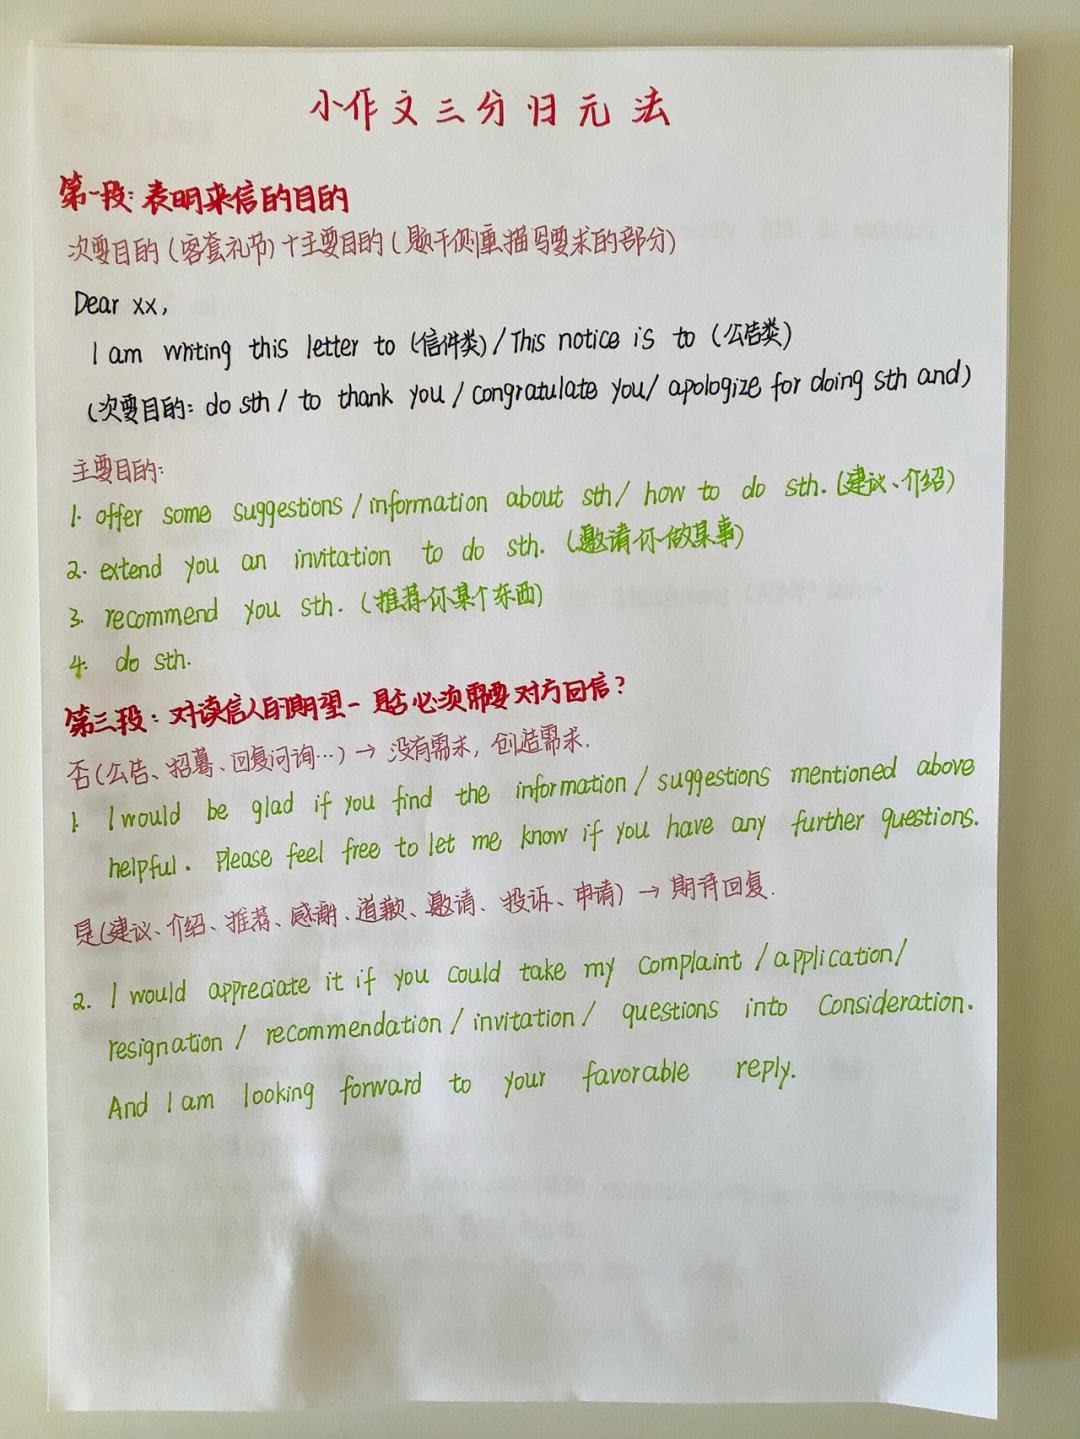 小作文三分归元法
第一段：表明来信的目的
次要目的（客套礼节）+主要目的（题干侧重描写要求的部分）
Dear xx,
I am writing this letter to（信件类）/ This notice is to（公告类）
（次要目的：do sth / to thank you / congratulate you / apologize for doing sth and）
主要目的：
1. offer some suggestions / information about sth / how to do sth.（建议、介绍）
2. extend you an invitation to do sth.（邀请你做某事）
3. recommend you sth.（推荐你某个东西）
4. do sth.
第三段：对读信人的期望-是否必须需要对方回信？
否（公告、招募、回复问询…）→ 没有需求，创造需求.
1. I would be glad if you find the information / suggestions mentioned above
helpful. Please feel free to let me know if you have any further questions.
是（建议、介绍、推荐、感谢、道歉、邀请、投诉、申请）→ 期待回复.
2. I would appreciate it if you could take my complaint / application /
resignation / recommendation / invitation / questions into consideration.
And I am looking forward to your favorable reply.